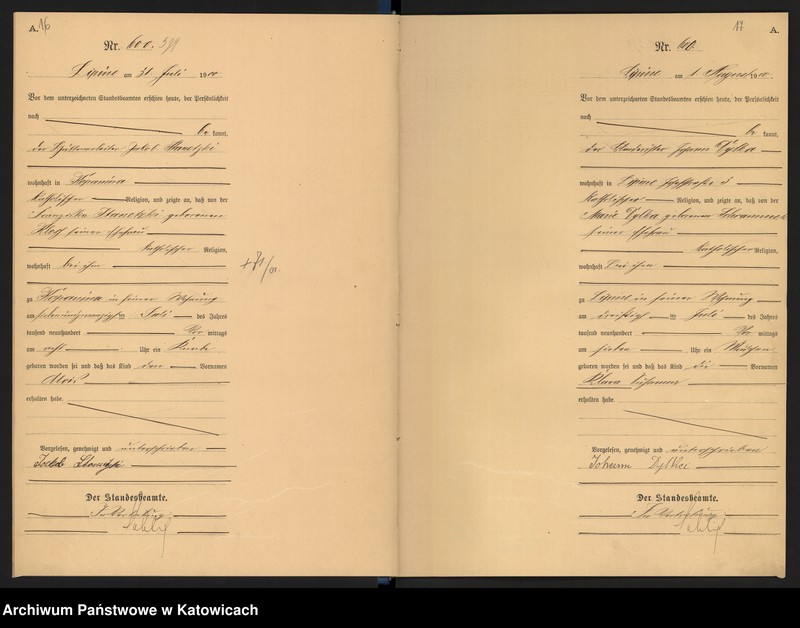 A. 16
Nr. 600. 599
Lipine am 31 Juli 1900
Vor dem unterzeichneten Standesbeamten erschien heute, der Persönlichkeit
nach
be kannt,
der Hüttenarbeiter Jakob
wohnhaft in Kopanina
katholischer Religion, und zeigte an, daß von der
Franziska geborenen
Kloß seiner Ehefrau
katholischer Religion,
wohnhaft bei ihm
zu Kopanina in seiner Wohnung
am siebenundzwanzigsten Juli des Jahres
tausend neunhundert Vor mittags
am acht Uhr ein Knabe
geboren worden sei und daß das Kind den Vornamen
Alois
erhalten habe.
Vorgelesen, genehmigt und unterschrieben
Der Standesbeamte.
In Vertretung
17 A.
Nr. 601.
Lipine am 1 August 1900.
Vor dem unterzeichneten Standesbeamten erschien heute, der Persönlichkeit
nach
be kannt,
der Johann Dylka
wohnhaft in Lipine
katholischer Religion, und zeigte an, daß von der
Marie Dylka geborenen
seiner Ehefrau
katholischer Religion,
wohnhaft bei ihm
zu Lipine in seiner Wohnung
am dreißigsten Juli des Jahres
tausend neunhundert Vor mittags
am sieben Uhr ein Mädchen
geboren worden sei und daß das Kind die Vornamen
Klara Susanna
erhalten habe.
Vorgelesen, genehmigt und unterschrieben
Johann
Der Standesbeamte.
In Vertretung
Archiwum Państwowe w Katowicach